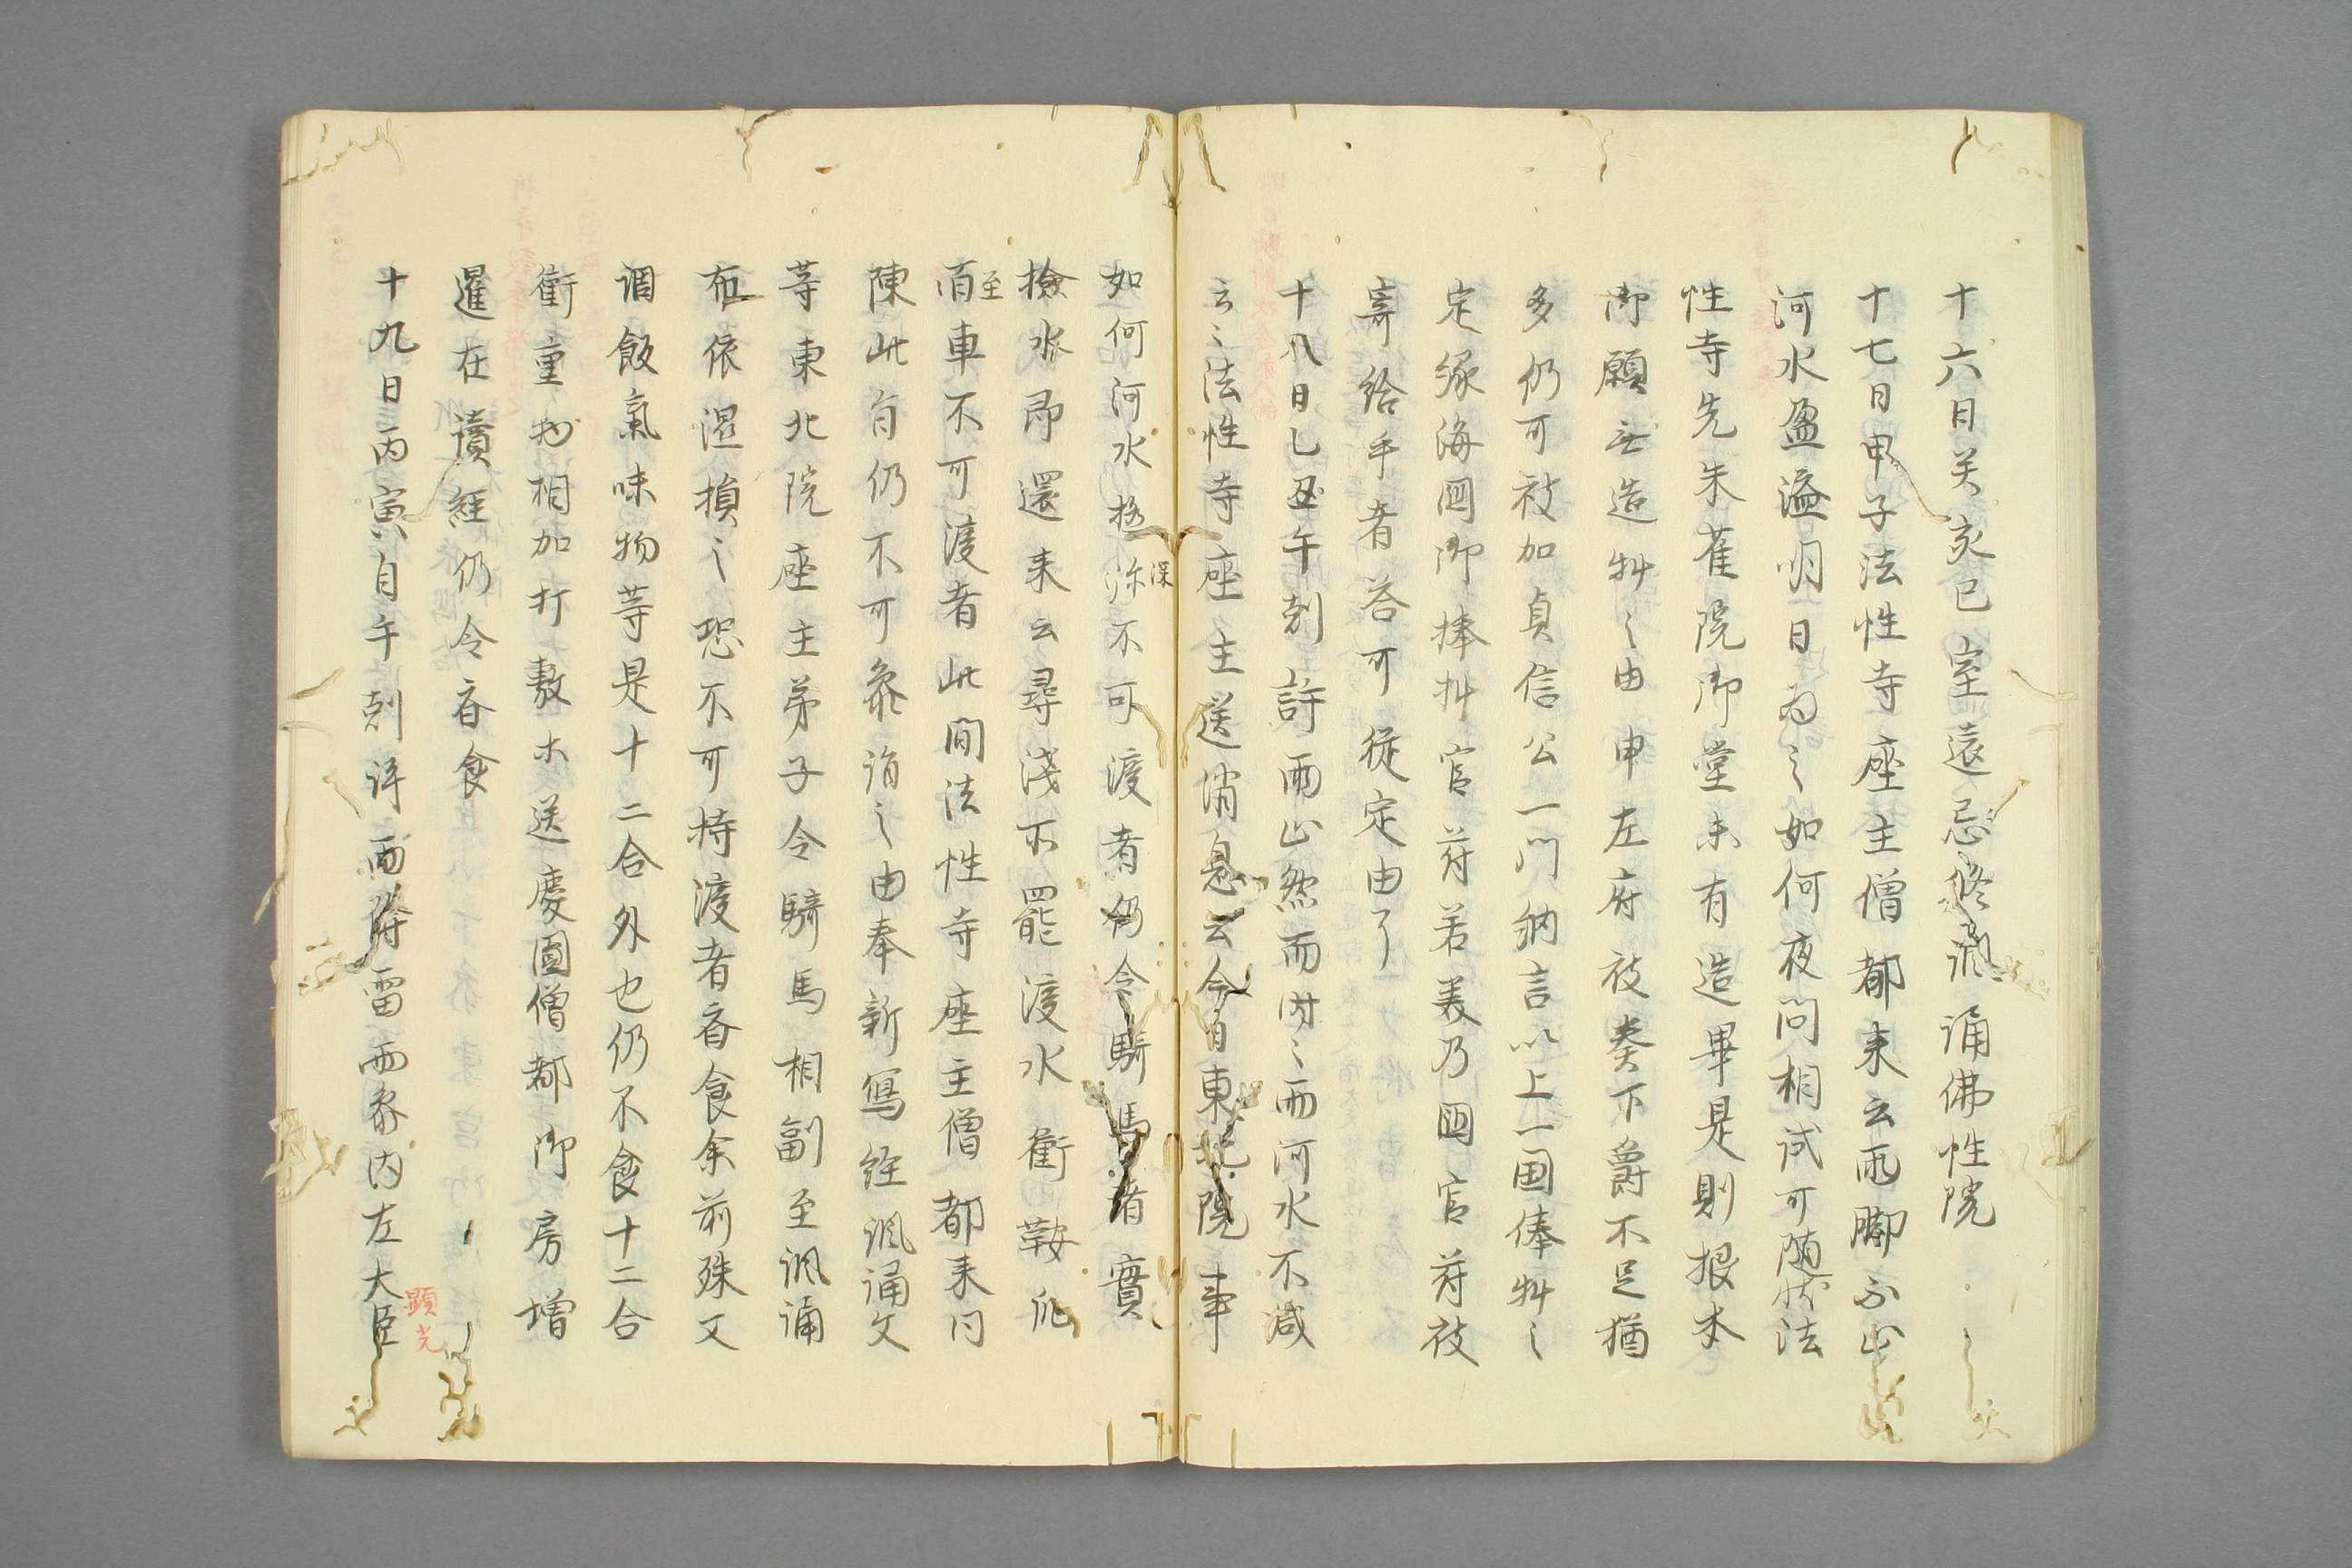 十六日癸亥已室遠忌修諷誦佛性院
十七日甲子法性寺座主僧都来云雨脚不止
河水盈溢明日為之如何夜間相試可随状法
性寺先朱雀院御堂未有造畢是則根本
御願無造料之由申左府被奏下爵不足猶
多仍可被加貞信公一門納言以上一国俸料之
定縁海国御捧料官苻若美乃国官苻被
寄給乎者荅可従定由了
十八日乙丑午剋許雨止然而内々而河水不減
云々法性寺座主送消息云今日東北院事
如何河水极深不可渡者仍令騎馬者實
撿水即還来云尋淺所罷渡水衝鞍爪
至車不可渡者此間法性寺座主僧都来門
陳此旨仍不可参詣之由奉新寫経諷誦文
等東北院座主弟子令騎馬相副至諷誦
布依湿損之恐不可持渡者香食余前殊又
調飯氣味物等是十二合外也仍不食十二合
衝重物相加打敷木送慶圓僧都御房増
暹在讀経仍令香食
十九日丙寅自午剋許雨降雷雨参内左大臣
顕光